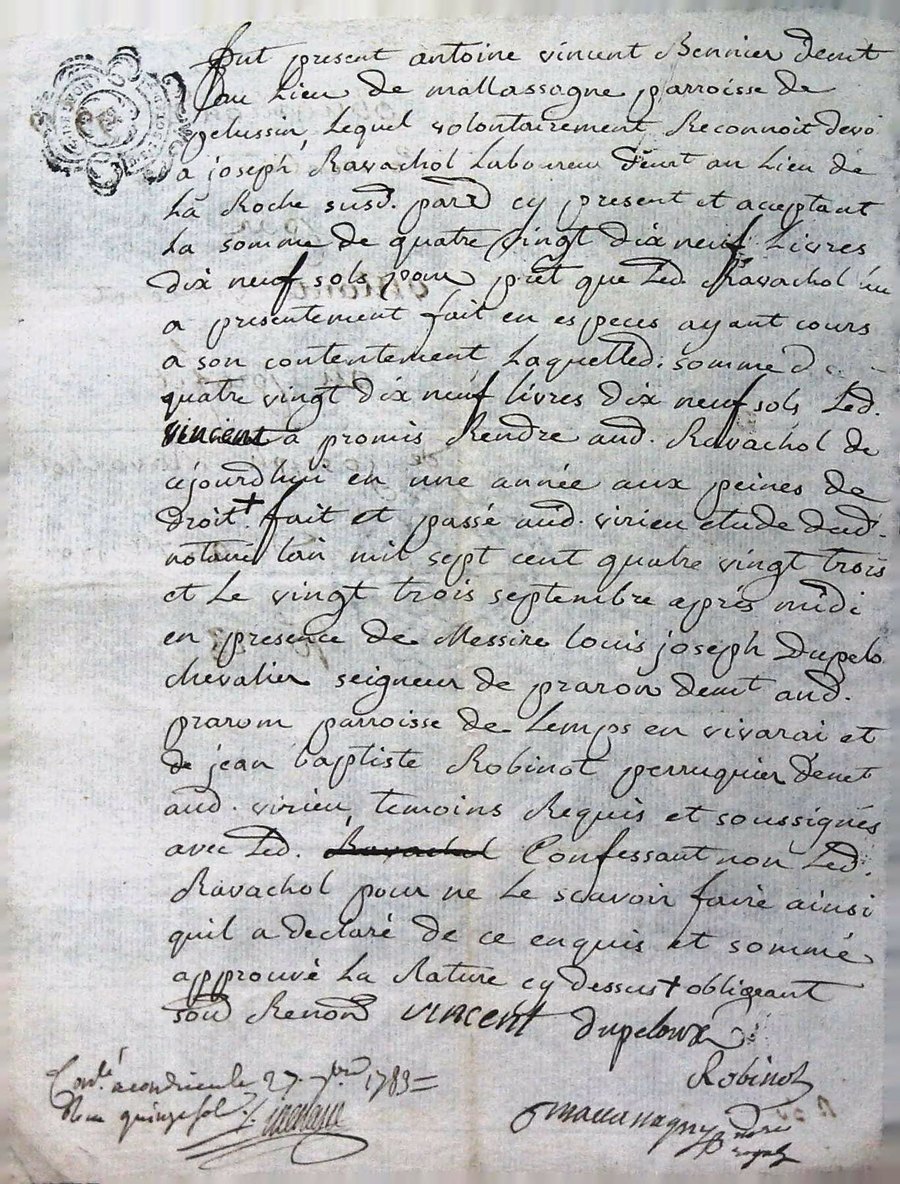 Fut present antoine vincent Bennier demt
au Lieu de mallassagne parroisse de
pelussin, Lequel volontairement Reconnoit devoi
a joseph Ravachol Laboureur demt au Lieu de
La Roche susd. parr cy present et acceptant
La somme de quatre vingt dix neuf Livres
dix neuf sols pour prêt que Led. Ravachol luy
a presentement fait en especes ayant cours
a son contentement Laquelled. somme d
quatre vingt dix neuf livres dix neuf sols Led.
vincent a promis Rendre aud. Ravachol de
cejourdhui en une année aux peines de
droit + fait et passé aud. virieu etude dud.
notaire lan mil sept cent quatre vingt trois
et Le vingt trois septembre aprés midi
en presence de Messire louis joseph Dupelo
chevalier seigneur de praron demt aud.
prarom parroisse de Lemps en vivarai et
de jean baptiste Robinot perruquier demt
aud. virieu, temoins Requis et soussignés
avec Led. Ravachol Confessant non Led.
Ravachol pour ne Le scavoir faire ainsi
quil a declaré de ce enquis et sommé
approuvé La Rature cy dessus + obligeant
soud Renond vincent dupeloux
Robinot
Conlé a condrieu le 27. 7bre 1783 =
Reçu quinze sols.
nore
royal